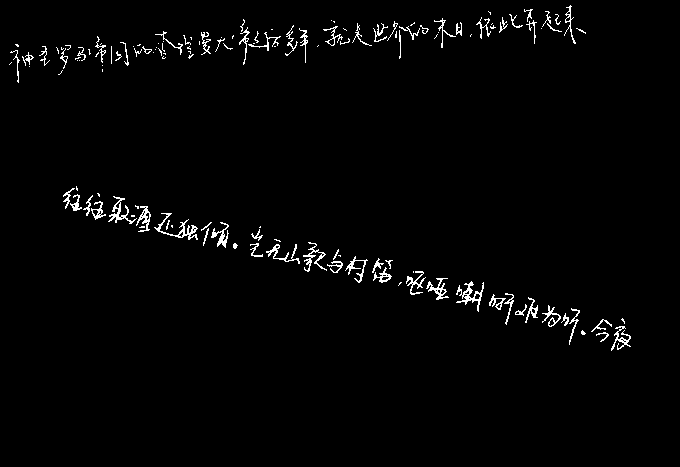 神圣罗马帝国的查理曼大帝，就是世界的末日，依此算起来
往往取酒还独倾。岂无山歌与村笛，呕哑嘲哳难为听。今夜